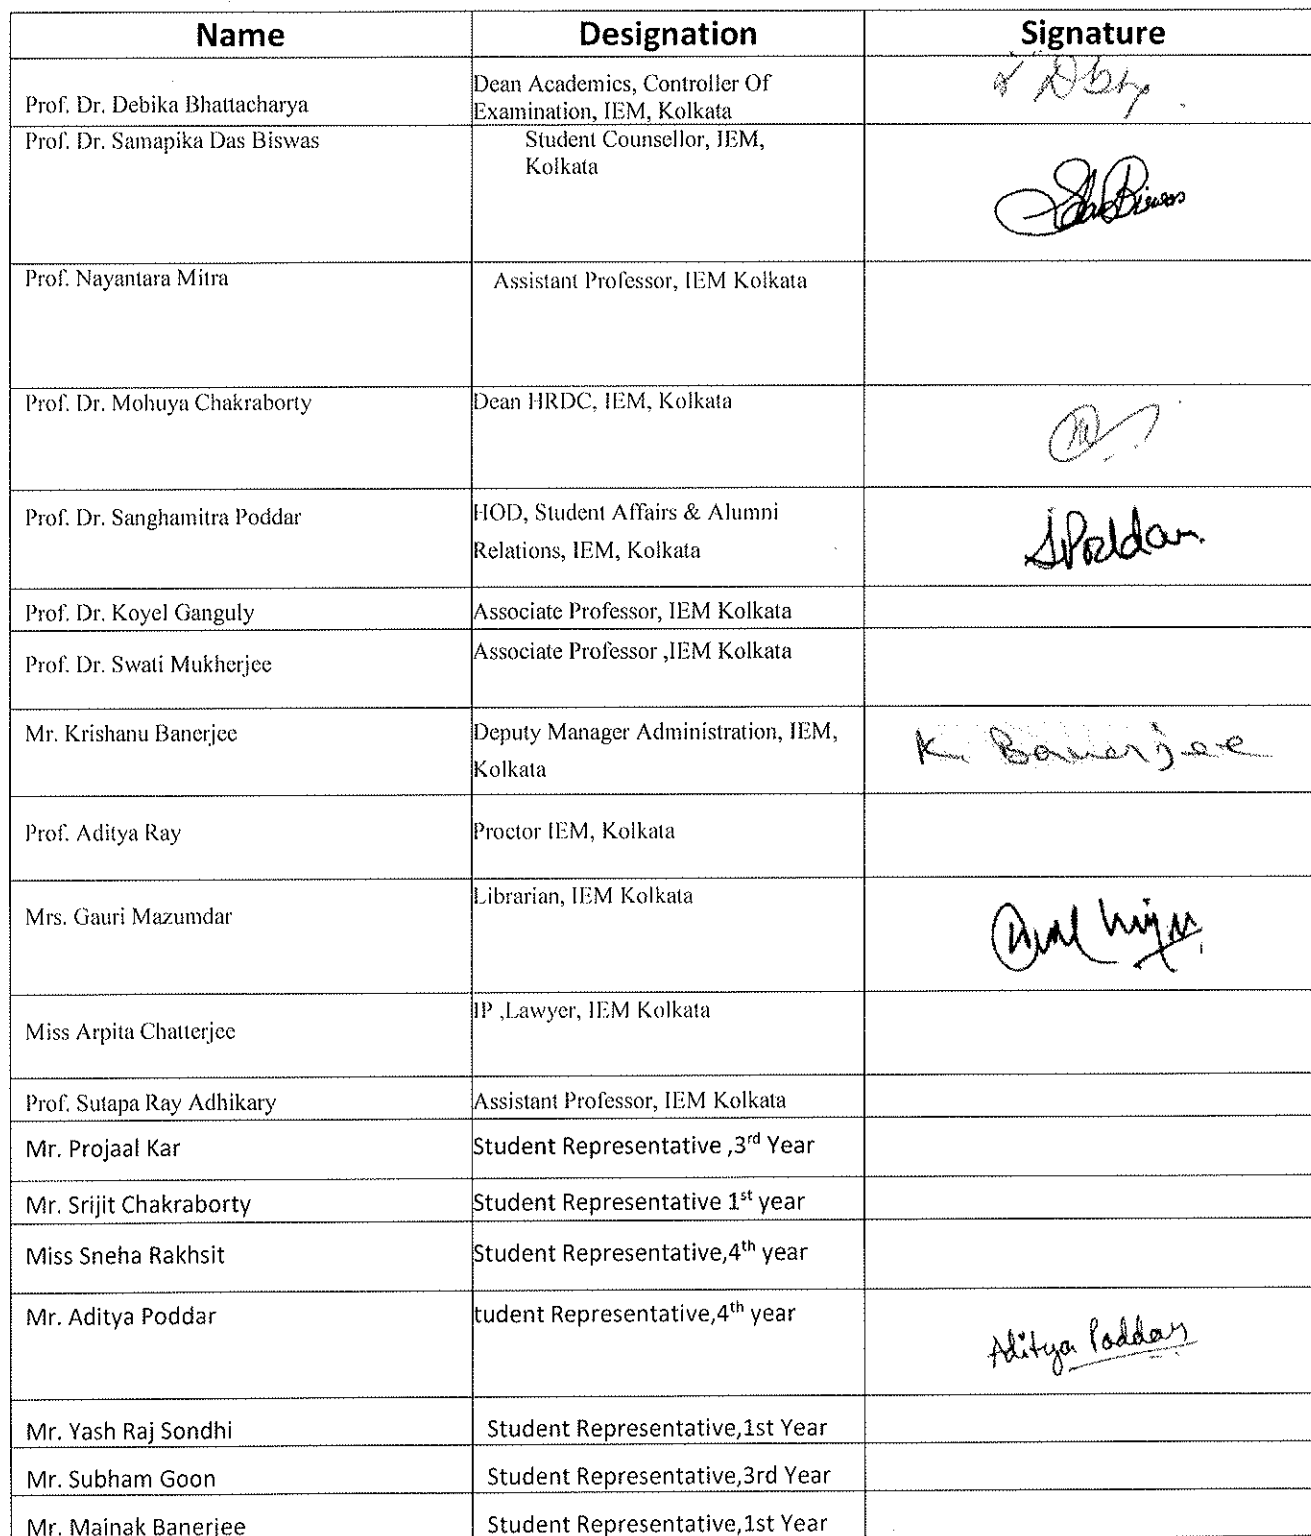 Name Designation Signature
Prof. Dr. Debika Bhattacharya
Dean Academics, Controller Of
Examination, IEM, Kolkata
Prof. Dr. Samapika Das Biswas
Student Counsellor, IEM,
Kolkata
Biswas
Prof. Nayantara Mitra
Assistant Professor, IEM Kolkata
Prof. Dr. Mohuya Chakraborty
Dean HRDC, IEM, Kolkata
Prof. Dr. Sanghamitra Poddar
HOD, Student Affairs & Alumni
Relations, IEM, Kolkata
SPoddar
Prof. Dr. Koyel Ganguly
Associate Professor, IEM Kolkata
Prof. Dr. Swati Mukherjee
Associate Professor ,IEM Kolkata
Mr. Krishanu Banerjee
Deputy Manager Administration, IEM,
Kolkata
K. Banerjee
Prof. Aditya Ray
Proctor IEM, Kolkata
Mrs. Gauri Mazumdar
Librarian, IEM Kolkata
Miss Arpita Chatterjee
IP ,Lawyer, IEM Kolkata
Prof. Sutapa Ray Adhikary
Assistant Professor, IEM Kolkata
Mr. Projaal Kar
Student Representative ,3rd Year
Mr. Srijit Chakraborty
Student Representative 1st year
Miss Sneha Rakhsit
Student Representative,4th year
Mr. Aditya Poddar
tudent Representative,4th year
Aditya Poddar
Mr. Yash Raj Sondhi
Student Representative,1st Year
Mr. Subham Goon
Student Representative,3rd Year
Mr. Mainak Banerjee
Student Representative,1st Year